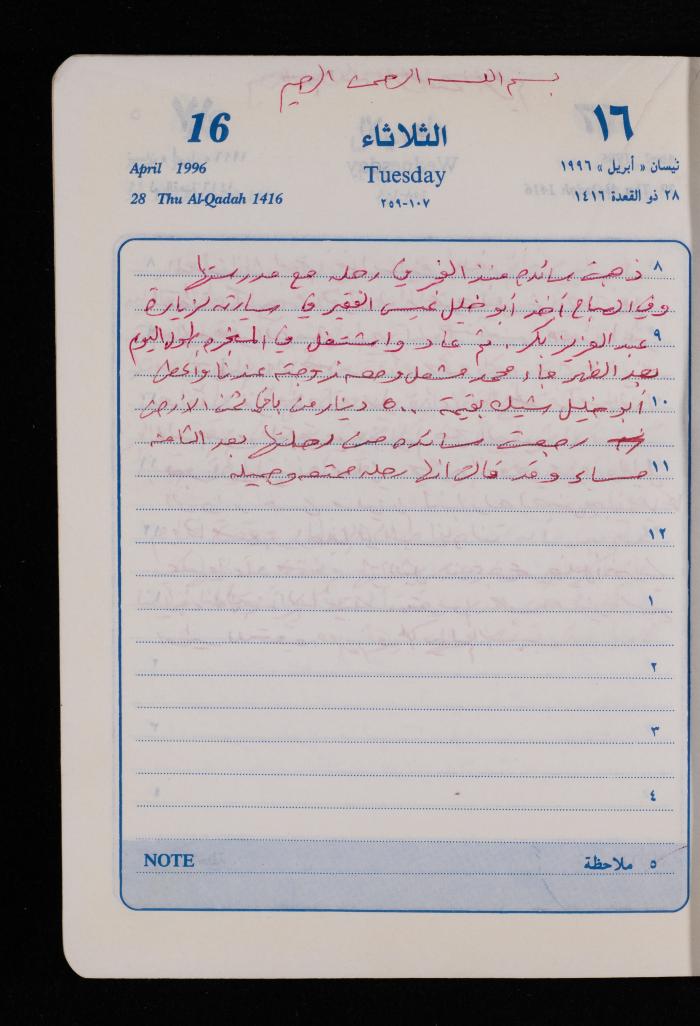 بسم الله الرحمن الرحيم
16 الثلاثاء ١٦
April 1996 Tuesday نيسان « أبريل » ١٩٩٦
28 Thu Al-Qadah 1416 ١٠٧-٢٥٩ ٢٨ ذو القعدة ١٤١٦
٨ ذهبت سائده منذ الفجر في رحله مع مدرستها
وفي الصباح أخذ أبو خليل عيسى الفقير في سيارته لزيارة
٩ عبد العزيز بكر . ثم عاد واشتغل في المنجره طول اليوم
بعد الظهر جاء محمد مشعل ومعه زوجته عندنا واعطى
١٠ أبو خليل شيك بقيمة ٥٠٠ دينار من باقي ثمن الأرض
رجعت سائده من رحلتها بعد الثامنه
١١ مساء وقد قالت انها رحله ممتعه وجميله
١٢
١
٢
٣
٤
NOTE ٥ ملاحظة